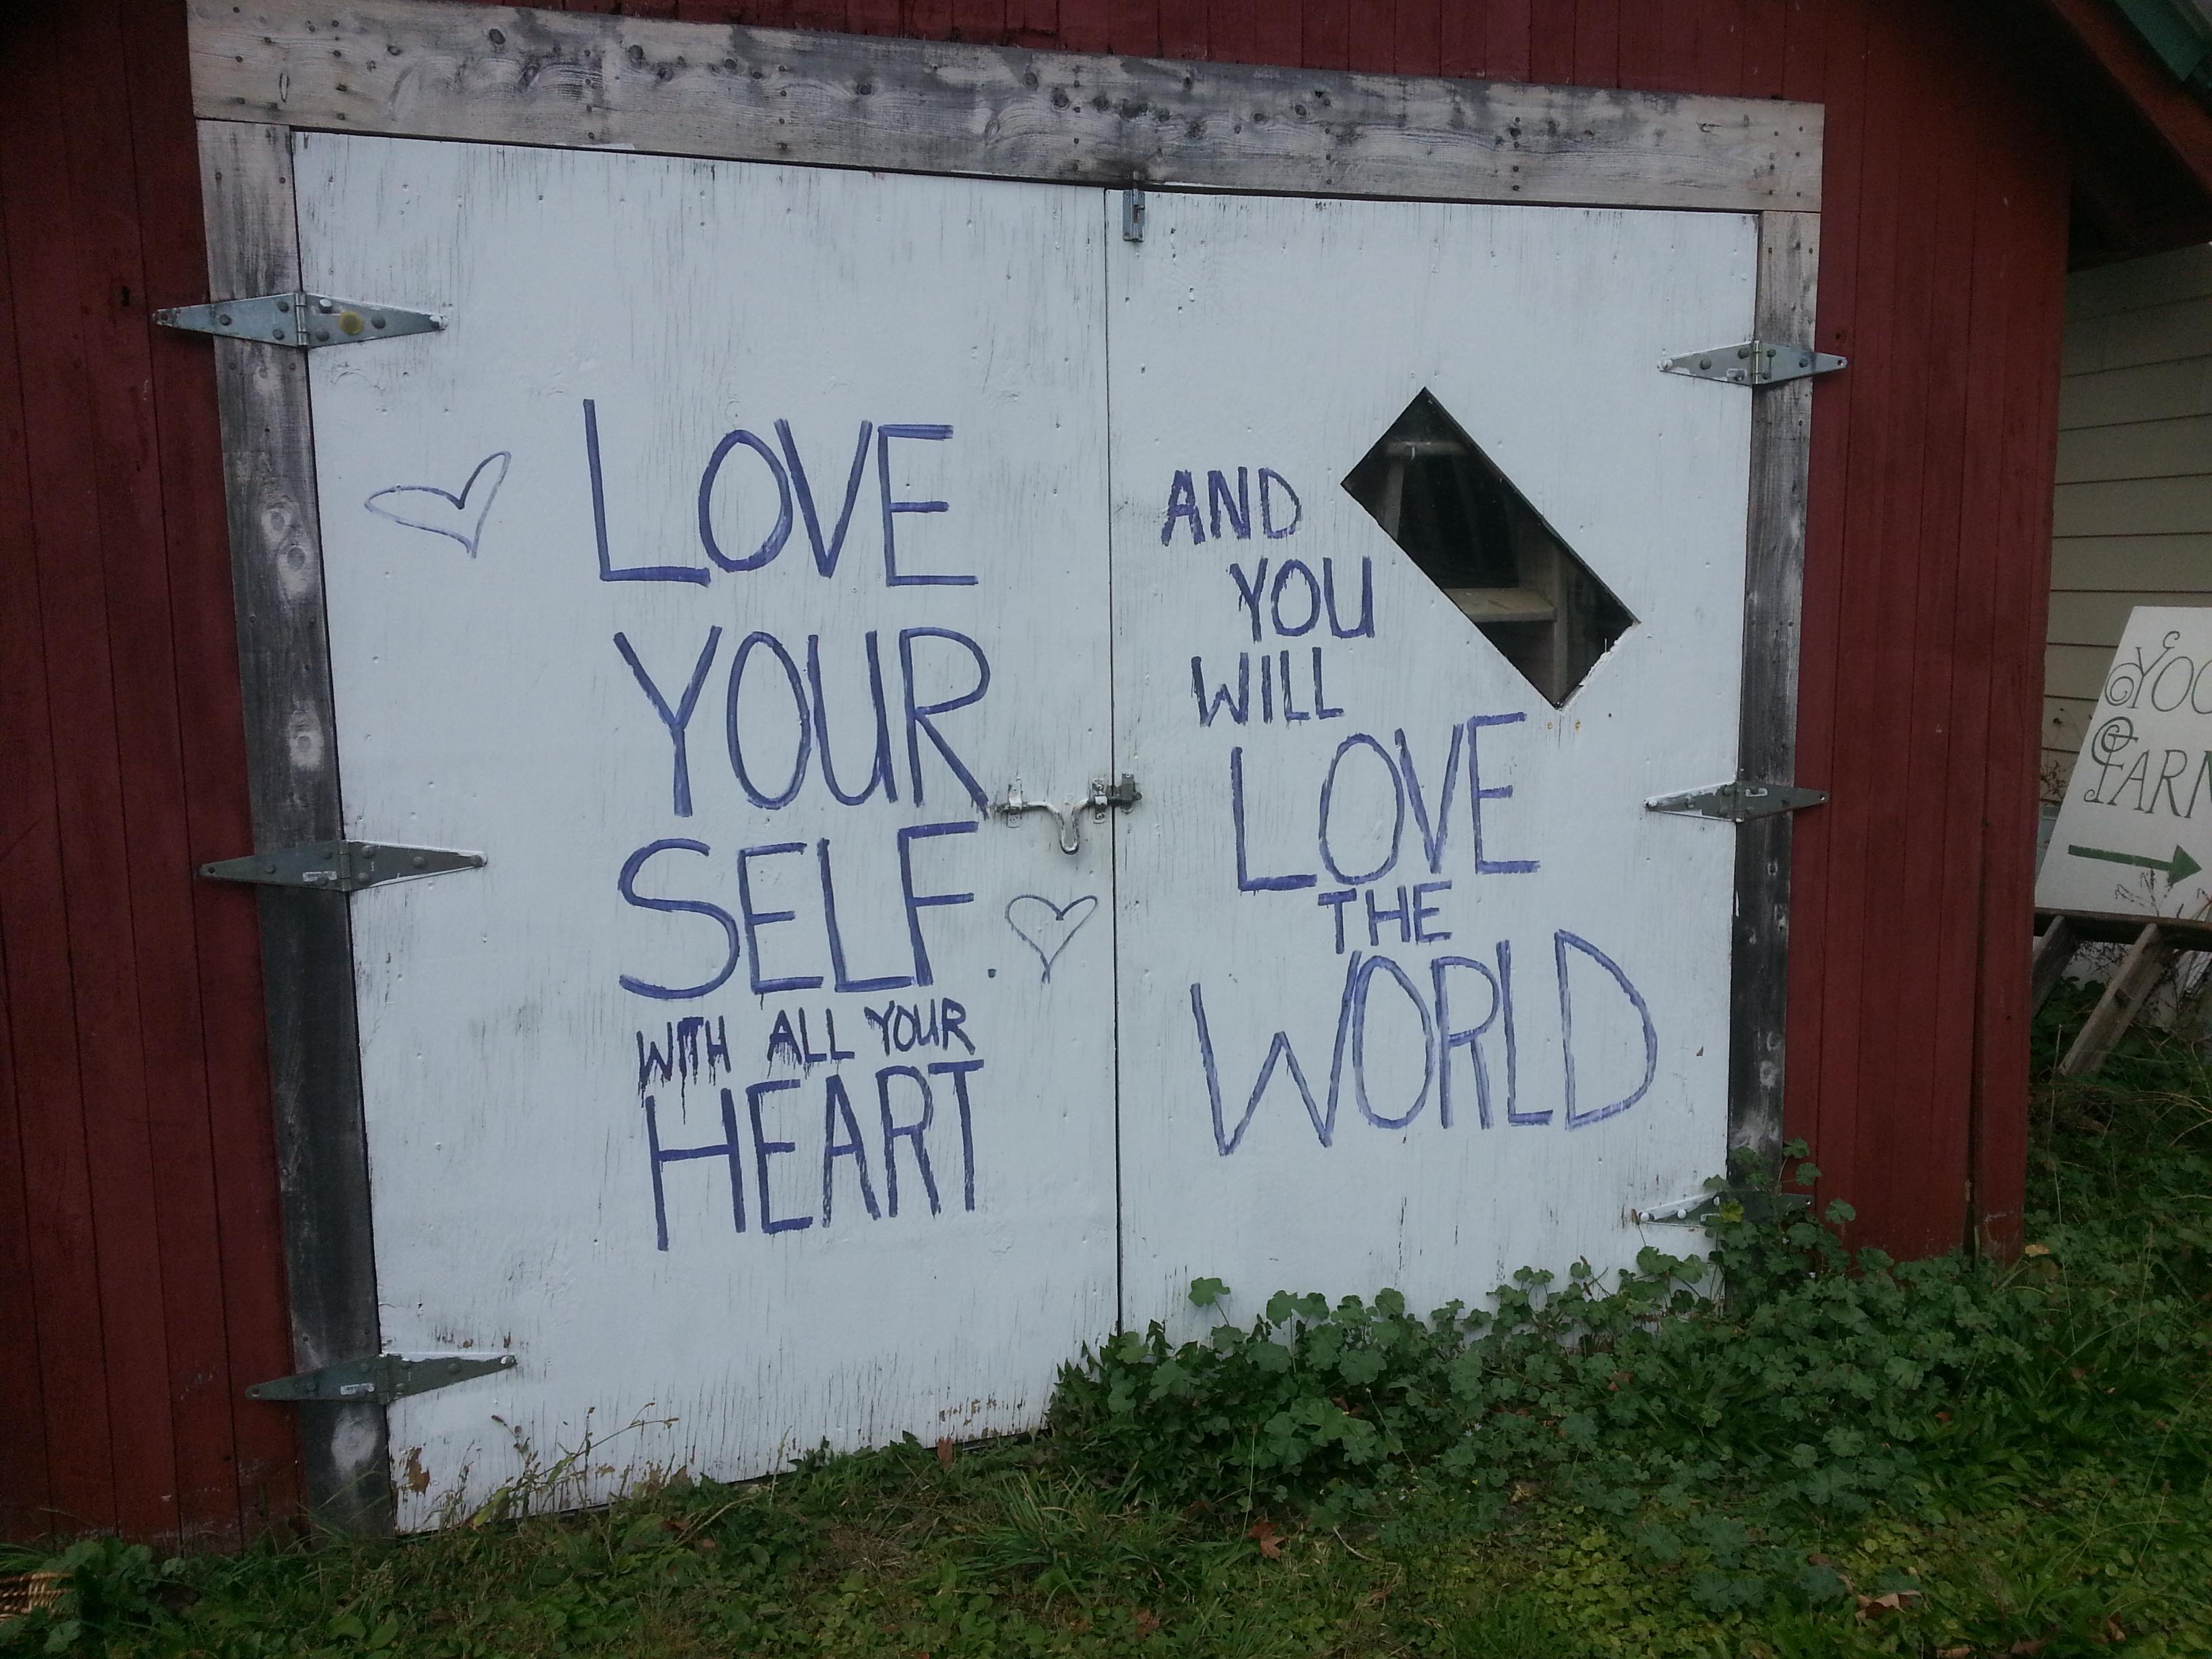 LOVE
YOUR
SELF.
WITH ALL YOUR
HEART
AND
YOU
WILL
LOVE
THE
WORLD